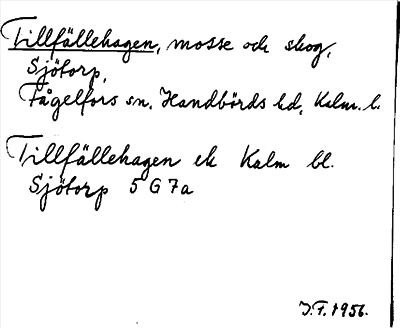 Tillfällehagen, mosse och skog,
Sjötorp,
Fågelfors sn, Handbörds hd, Kalm. l.
Tillfällehagen ek Kalm bl.
Sjötorp 5 G 7a
J.F. 1956.